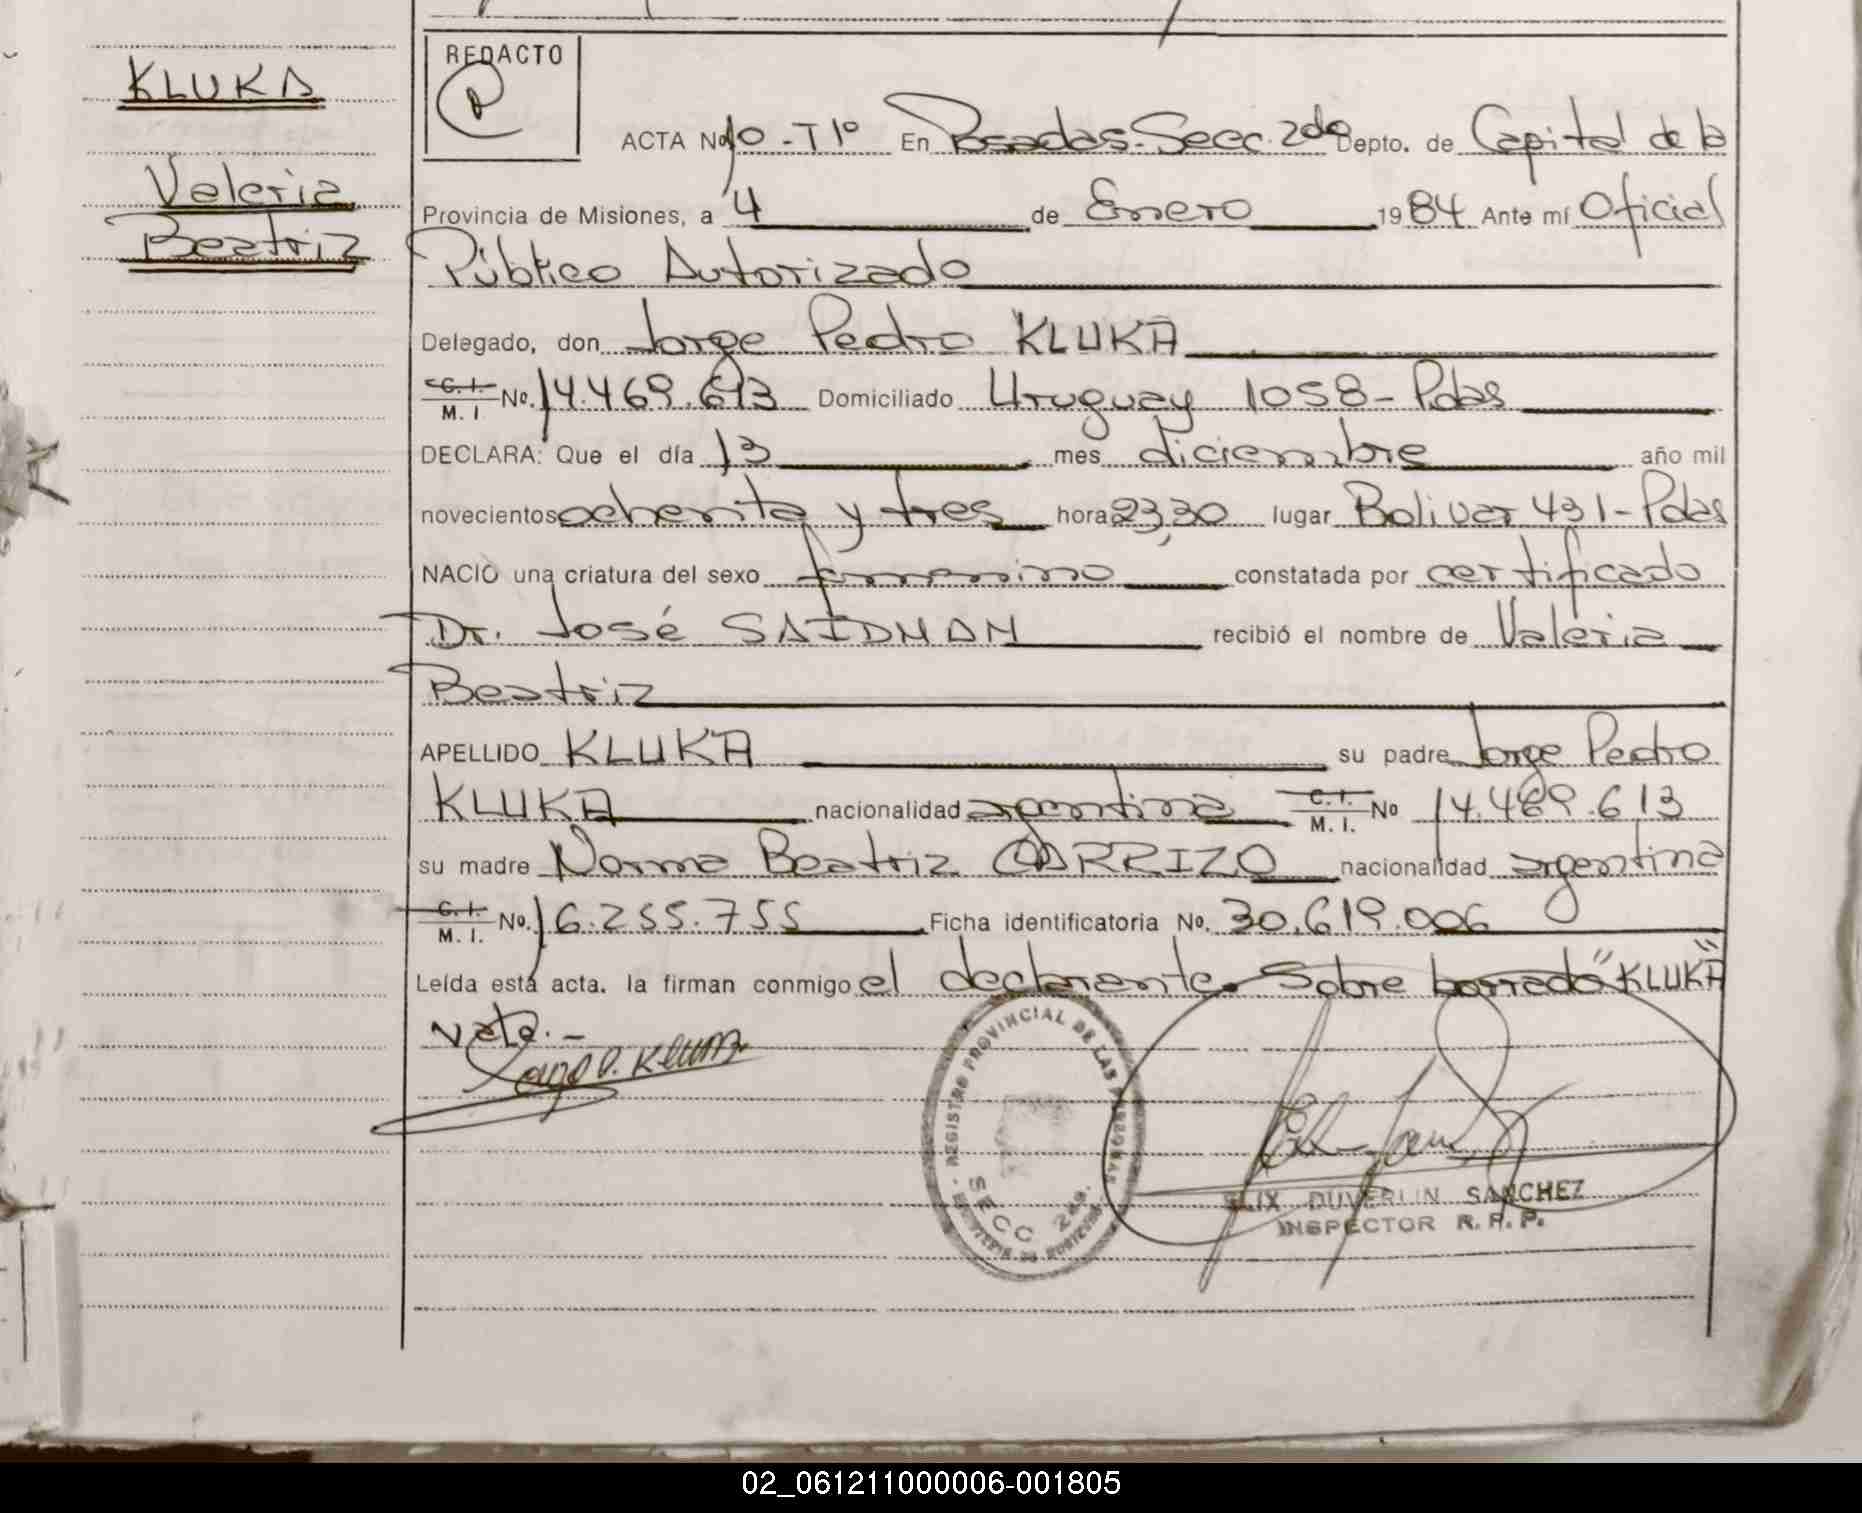 REDACTO
KLUKA
Valeria
Beatriz
ACTA No 10 - T1º En Posadas-Secc. 2da Depto. de Capital de la
Provincia de Misiones, a 4 de Enero 1984 Ante mí Oficial
Público Autorizado
Delegado, don Jorge Pedro KLUKA
C. I. M. I No. 14.469.613 Domiciliado Uruguay 1058-Pdas
DECLARA: Que el día 13 mes diciembre año mil
novecientos ochenta y tres hora 23,30 lugar Bolivar 431-Pdas
NACIÓ una criatura del sexo femenino constatada por certificado
Dr. José SAIDMAN recibió el nombre de Valeria
Beatriz
APELLIDO KLUKA su padre Jorge Pedro
KLUKA nacionalidad argentina C. I. M. I. No 14.469.613
su madre Norma Beatriz CARRIZO nacionalidad argentina
C. I. M. I. No. 16.255.755 Ficha identificatoria No. 30.619.006
Leída está acta. la firman conmigo el declarante. Sobre borrado "KLUKA"
Vale.-
Jorge P. Kluka
REGISTRO PROVINCIAL DE LAS PERSONAS
SECC 2da.
DUVERLIN SANCHEZ
INSPECTOR R. P. P.
02_061211000006-001805